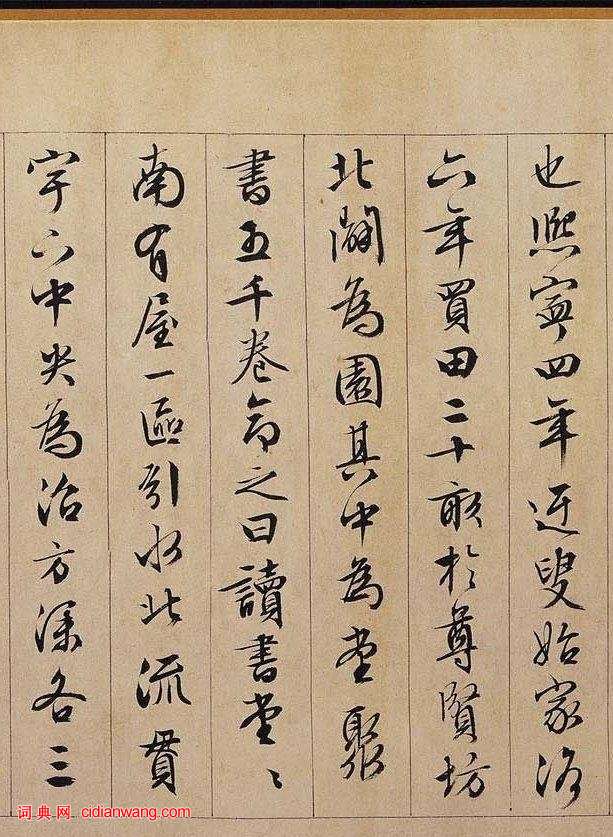 也熙寧四年迂叟始家洛
六年買田二十畝於尊賢坊
北闢為園其中為堂聚
書五千卷命之曰讀書堂〻
南有屋一區引水北流貫
宇下中央為沼方深各三
词典网 cidianwang.com